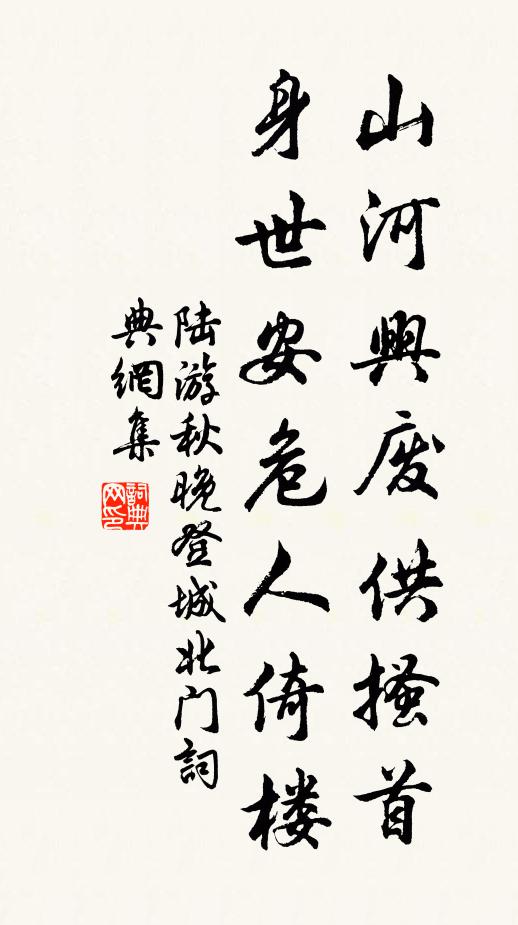 山河興废供搔首
身世安危人倚楼
陆游秋晚登城北门詞
典網集
詞典网印